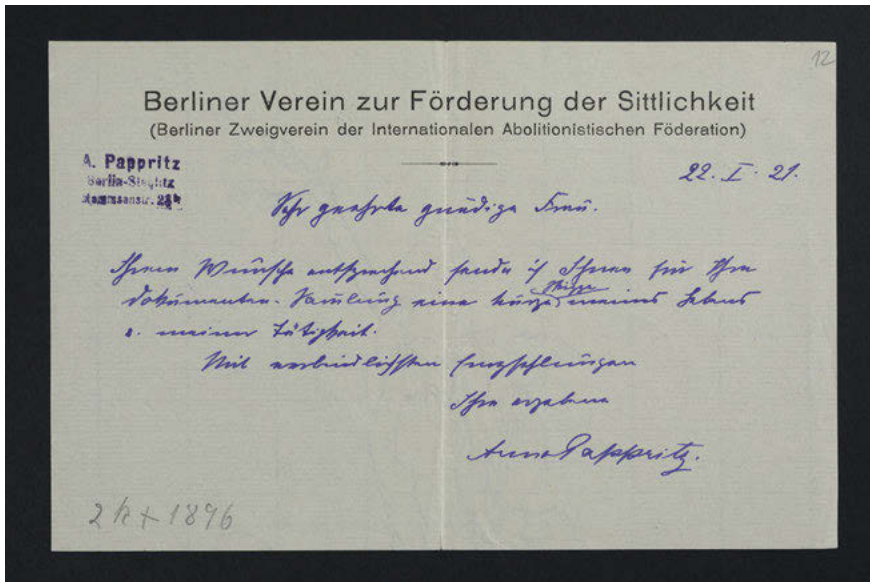 12
Berliner Verein zur Förderung der Sittlichkeit
(Berliner Zweigverein der Internationalen Abolitionistischen Föderation)
A. Pappritz
Berlin-Steglitz
Mommsenstr. 23
22. I. 21.
Sehr geehrte gnädige Frau.
Ihrem Wunsche entsprechend sende ich Ihnen für Ihre
Skizze
Dokumenten-Samlung eine kurze meines Lebens
u. meiner Tätigkeit.
Mit verbindlichsten Empfehlungen
Ihre ergebene
Anna Pappritz.
1896